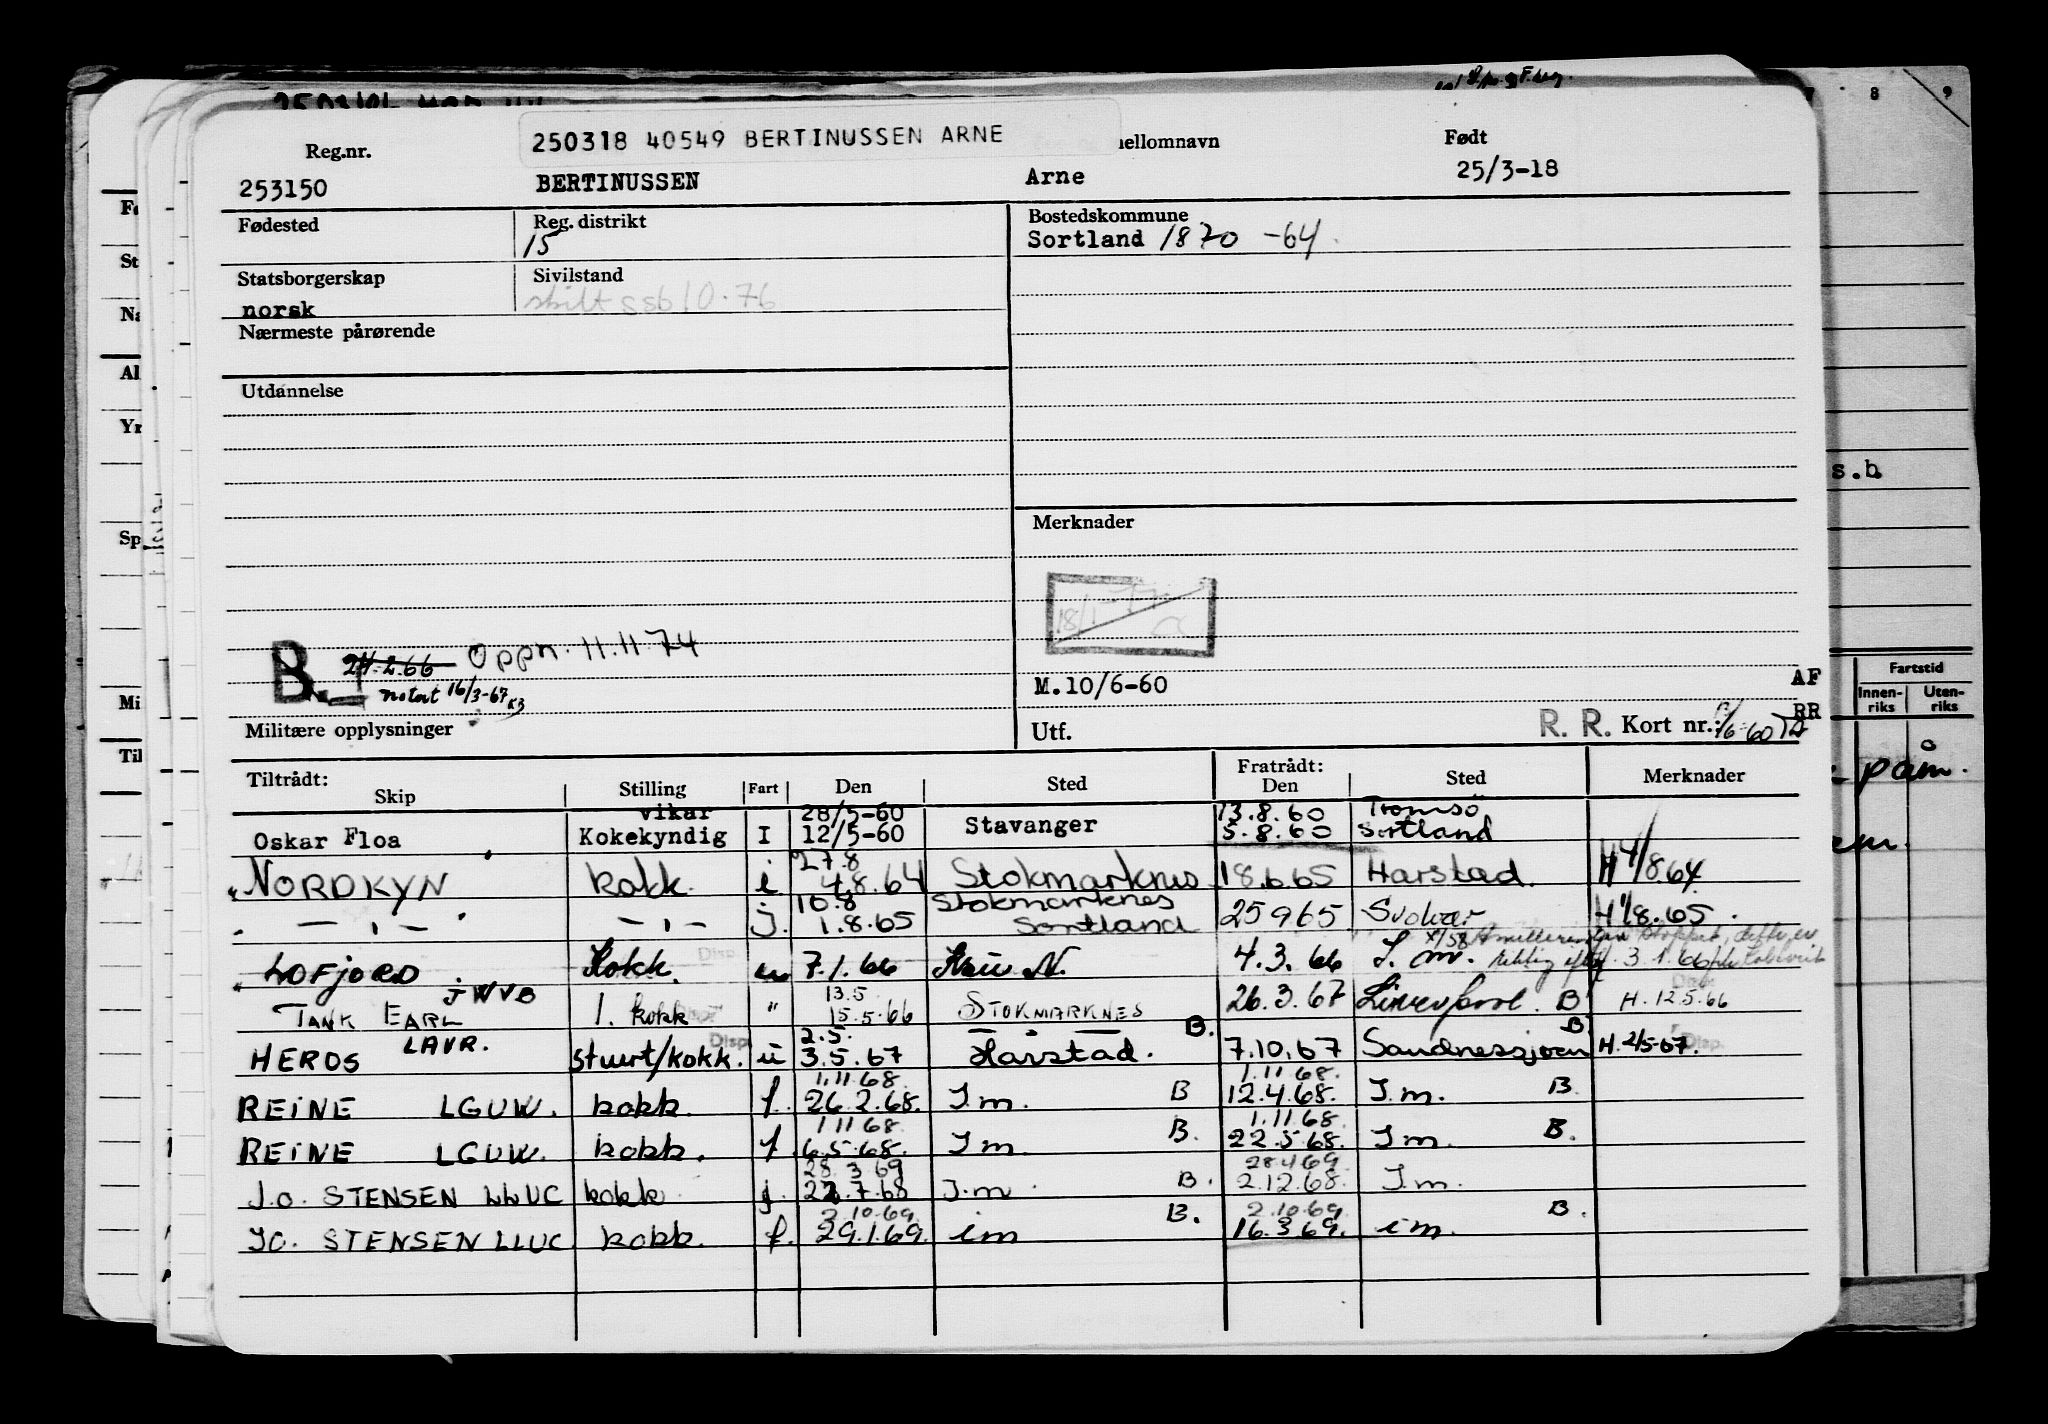 250318 40549 BERTINUSSEN ARNE
Reg.nr. ellomnavn Født
253150 BERTINUSSEN Arne 25/3-18
Fødested Reg. distrikt Bostedskommune
15 Sortland 1870 -64.
Statsborgerskap Sivilstand
norsk skilt ssb 10.76
Nærmeste pårørende
Utdannelse
s.b
Merknader
B. 24.2.66 Oppn. 11.11.74
notert 16/3-67
M.10/6-60 AF
Militære opplysninger Utf. R. R. Kort nr. RR
Fartstid
Innen-riks Uten-riks
Tiltrådt: Fratrådt:
Skip Stilling Fart Den Sted Den Sted Merknader
vikar 28/5-60 13.8.60 Tromsö
Oskar Floa Kokekyndig I 12/5-60 Stavanger 5.8.60 Sortland
27.8
NORDKYN kokk i 4.8.64 Stokmarknes 18.6.65 Harstad. H 4/8.64
10.8 Stokmarknes
— " — — " — j. 1.8.65 Sortland 25 9 65 Svolvær H 1/8.65.
LOFJORD Kokk. u 7.1.66 N. 4.3.66 I. m. 3.1.66
JWVB 13.5
TANK EARL 1. kokk " 15.5.66 STOKMARKNES 26.3.67 Liverpool. B H. 12.5.66
LAVR. 2.5. B. B
HEROS stuert/kokk. u 3.5.67 Harstad. 7.10.67 Sandnessjøen H. 2/5-67.
1.11.68. 1.11.68.
REINE LGUW. kokk. f. 26.2.68. I.m. B 12.4.68. I.m. B.
1.11.68. 1.11.68.
REINE LGUW. kokk. f. 6.5.68. I.m. B. 22.5.68. I.m. B.
28.3 69 28.4 69.
J.O. STENSEN LLUC kokk j. 22.7.68 I.m B. 2.12.68. I.m.
2.10.69. 2.10.69.
JO. STENSEN LLUC kokk. f. 29.1.69. i m B. 16.3.69. i m. B.